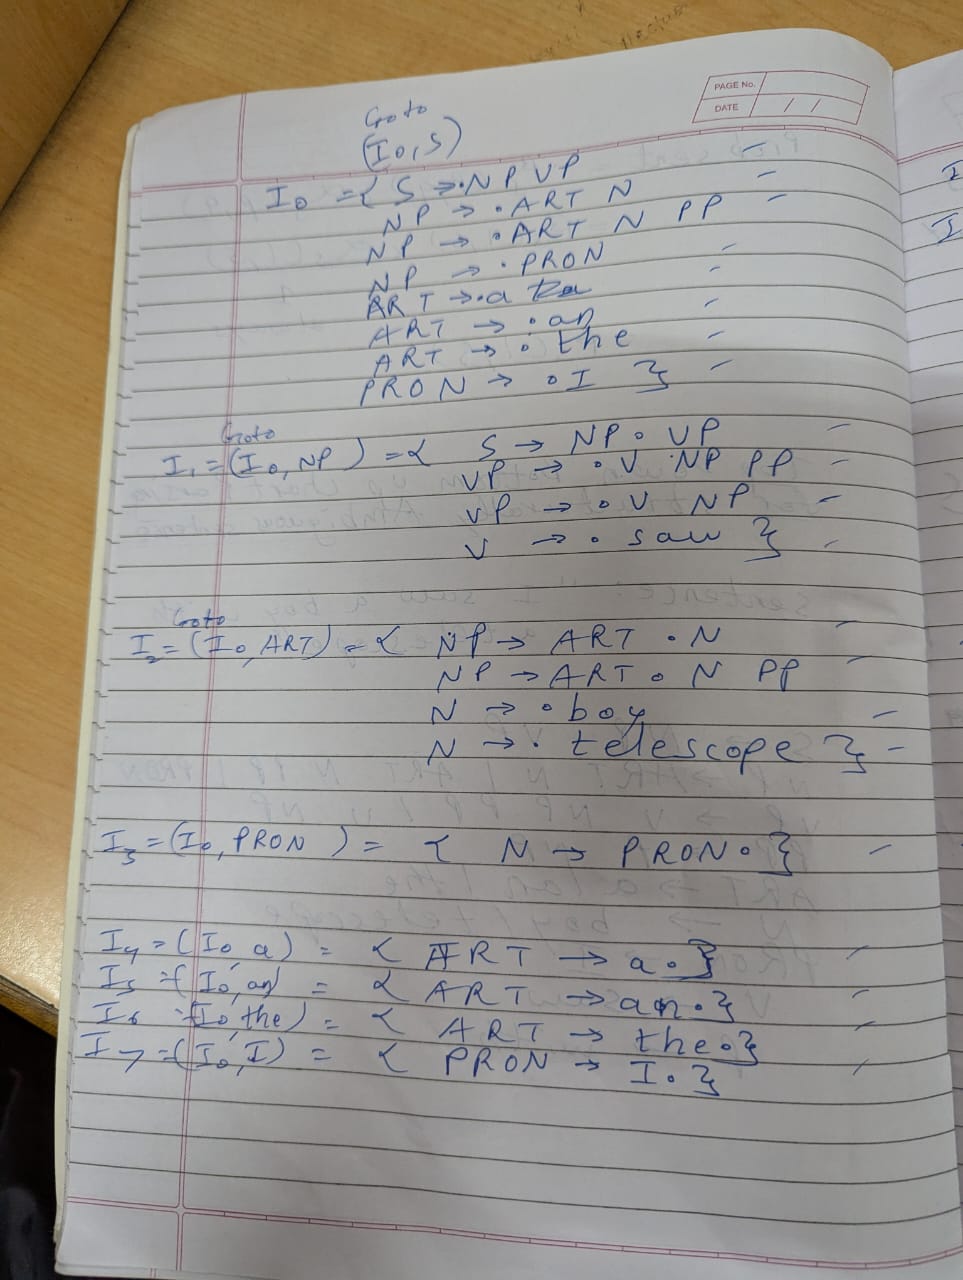 PAGE No.
DATE / /
Goto
(I0, S)
I0 = { S → •NP VP
NP → •ART N
NP → •ART N PP
NP → •PRON
ART → •a
ART → •an
ART → •the
PRON → •I }
Goto
I1 = (I0, NP) = { S → NP • VP
VP → •V NP PP
VP → •V NP
V → •saw }
Goto
I2 = (I0, ART) = { NP → ART •N
NP → ART •N PP
N → •boy
N → •telescope }
I3 = (I0, PRON) = { N → PRON• }
I4 = (I0, a) = { ART → a• }
I5 = (I0, an) = { ART → an• }
I6 = (I0, the) = { ART → the• }
I7 = (I0, I) = { PRON → I• }